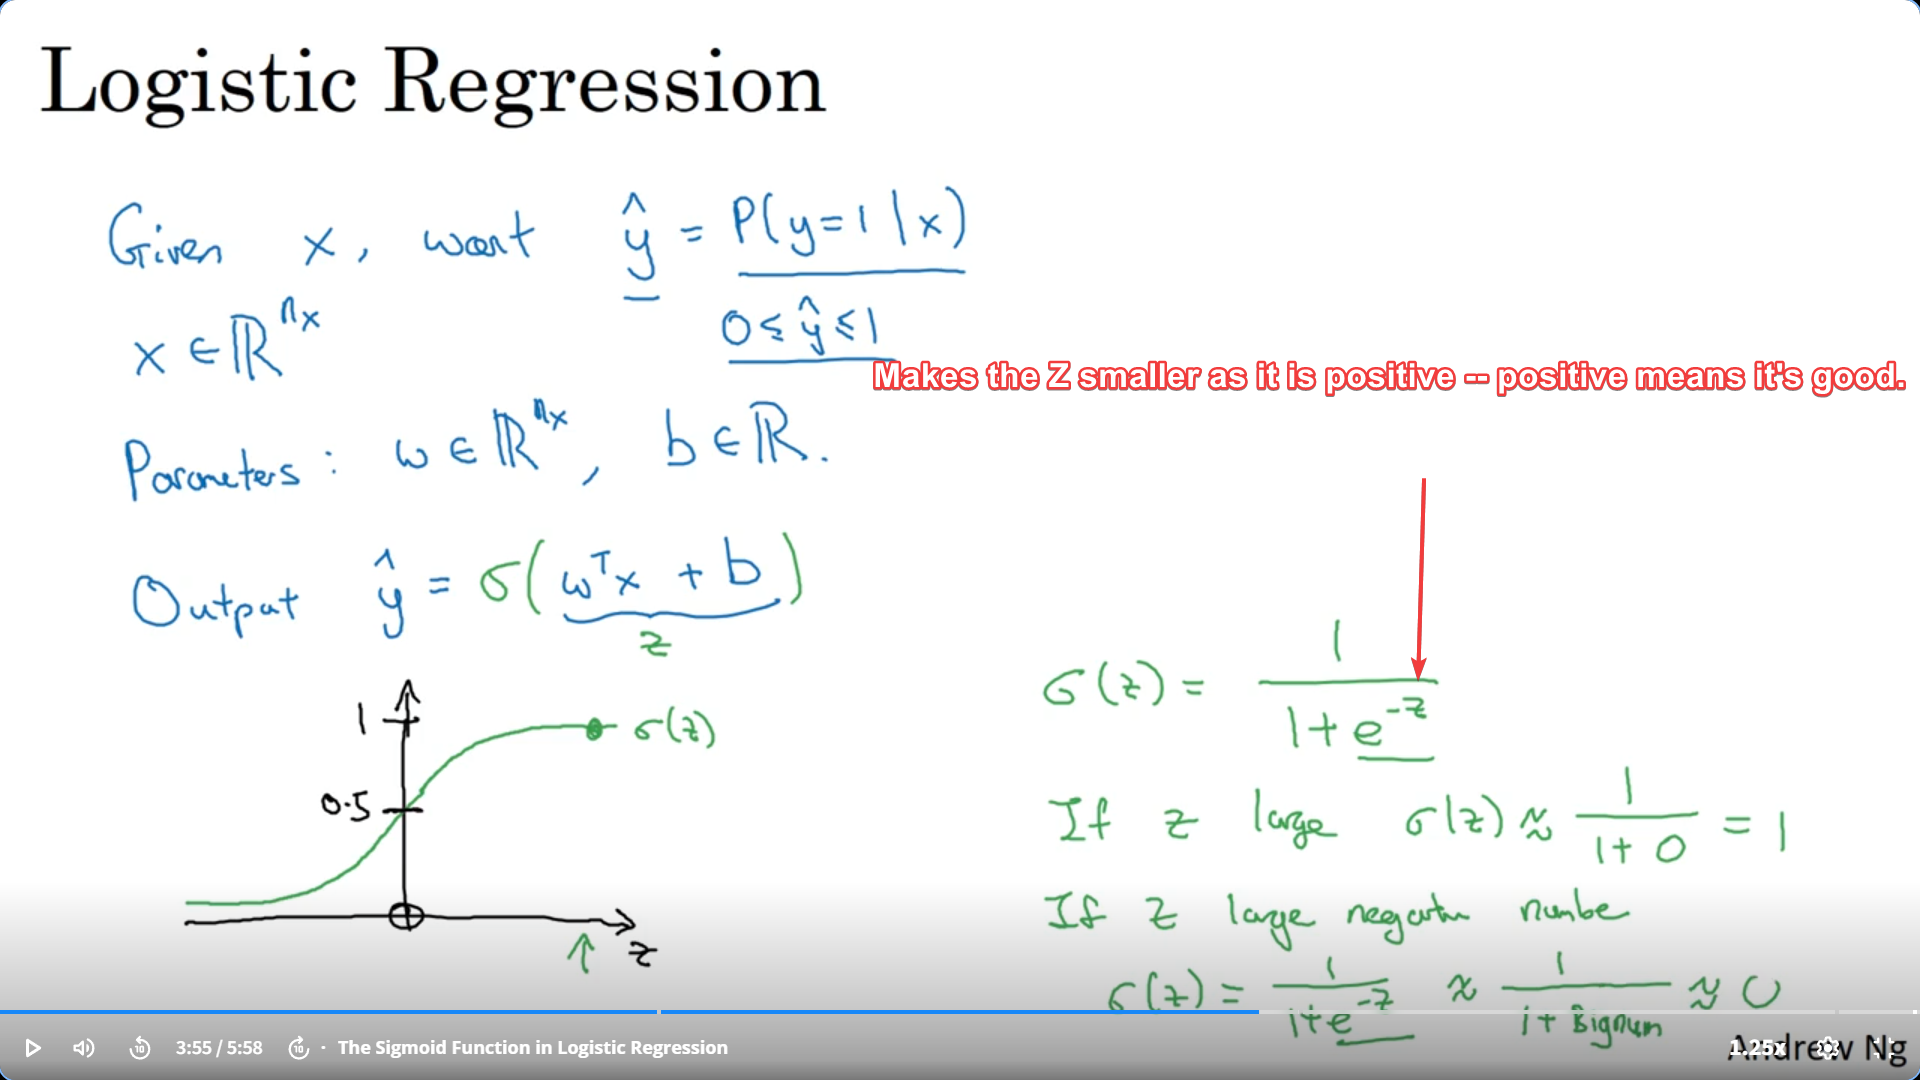 Logistic Regression
Given x, want ŷ = P(y=1|x)
x ∈ ℝⁿˣ 0 ≤ ŷ ≤ 1
Makes the Z smaller as it is positive -- positive means it's good.
Parameters : w ∈ ℝⁿˣ, b ∈ ℝ.
Output ŷ = σ(wᵀx + b)
z
1
0.5
σ(z)
z
σ(z) = 1 / (1 + e^-z)
If z large σ(z) ≈ 1 / (1 + 0) = 1
If z large negative number
σ(z) = 1 / (1 + e^-z) ≈ 1 / (1 + Bignum) ≈ 0
3:55 / 5:58 10 10 · The Sigmoid Function in Logistic Regression
1.25x
Andrew Ng